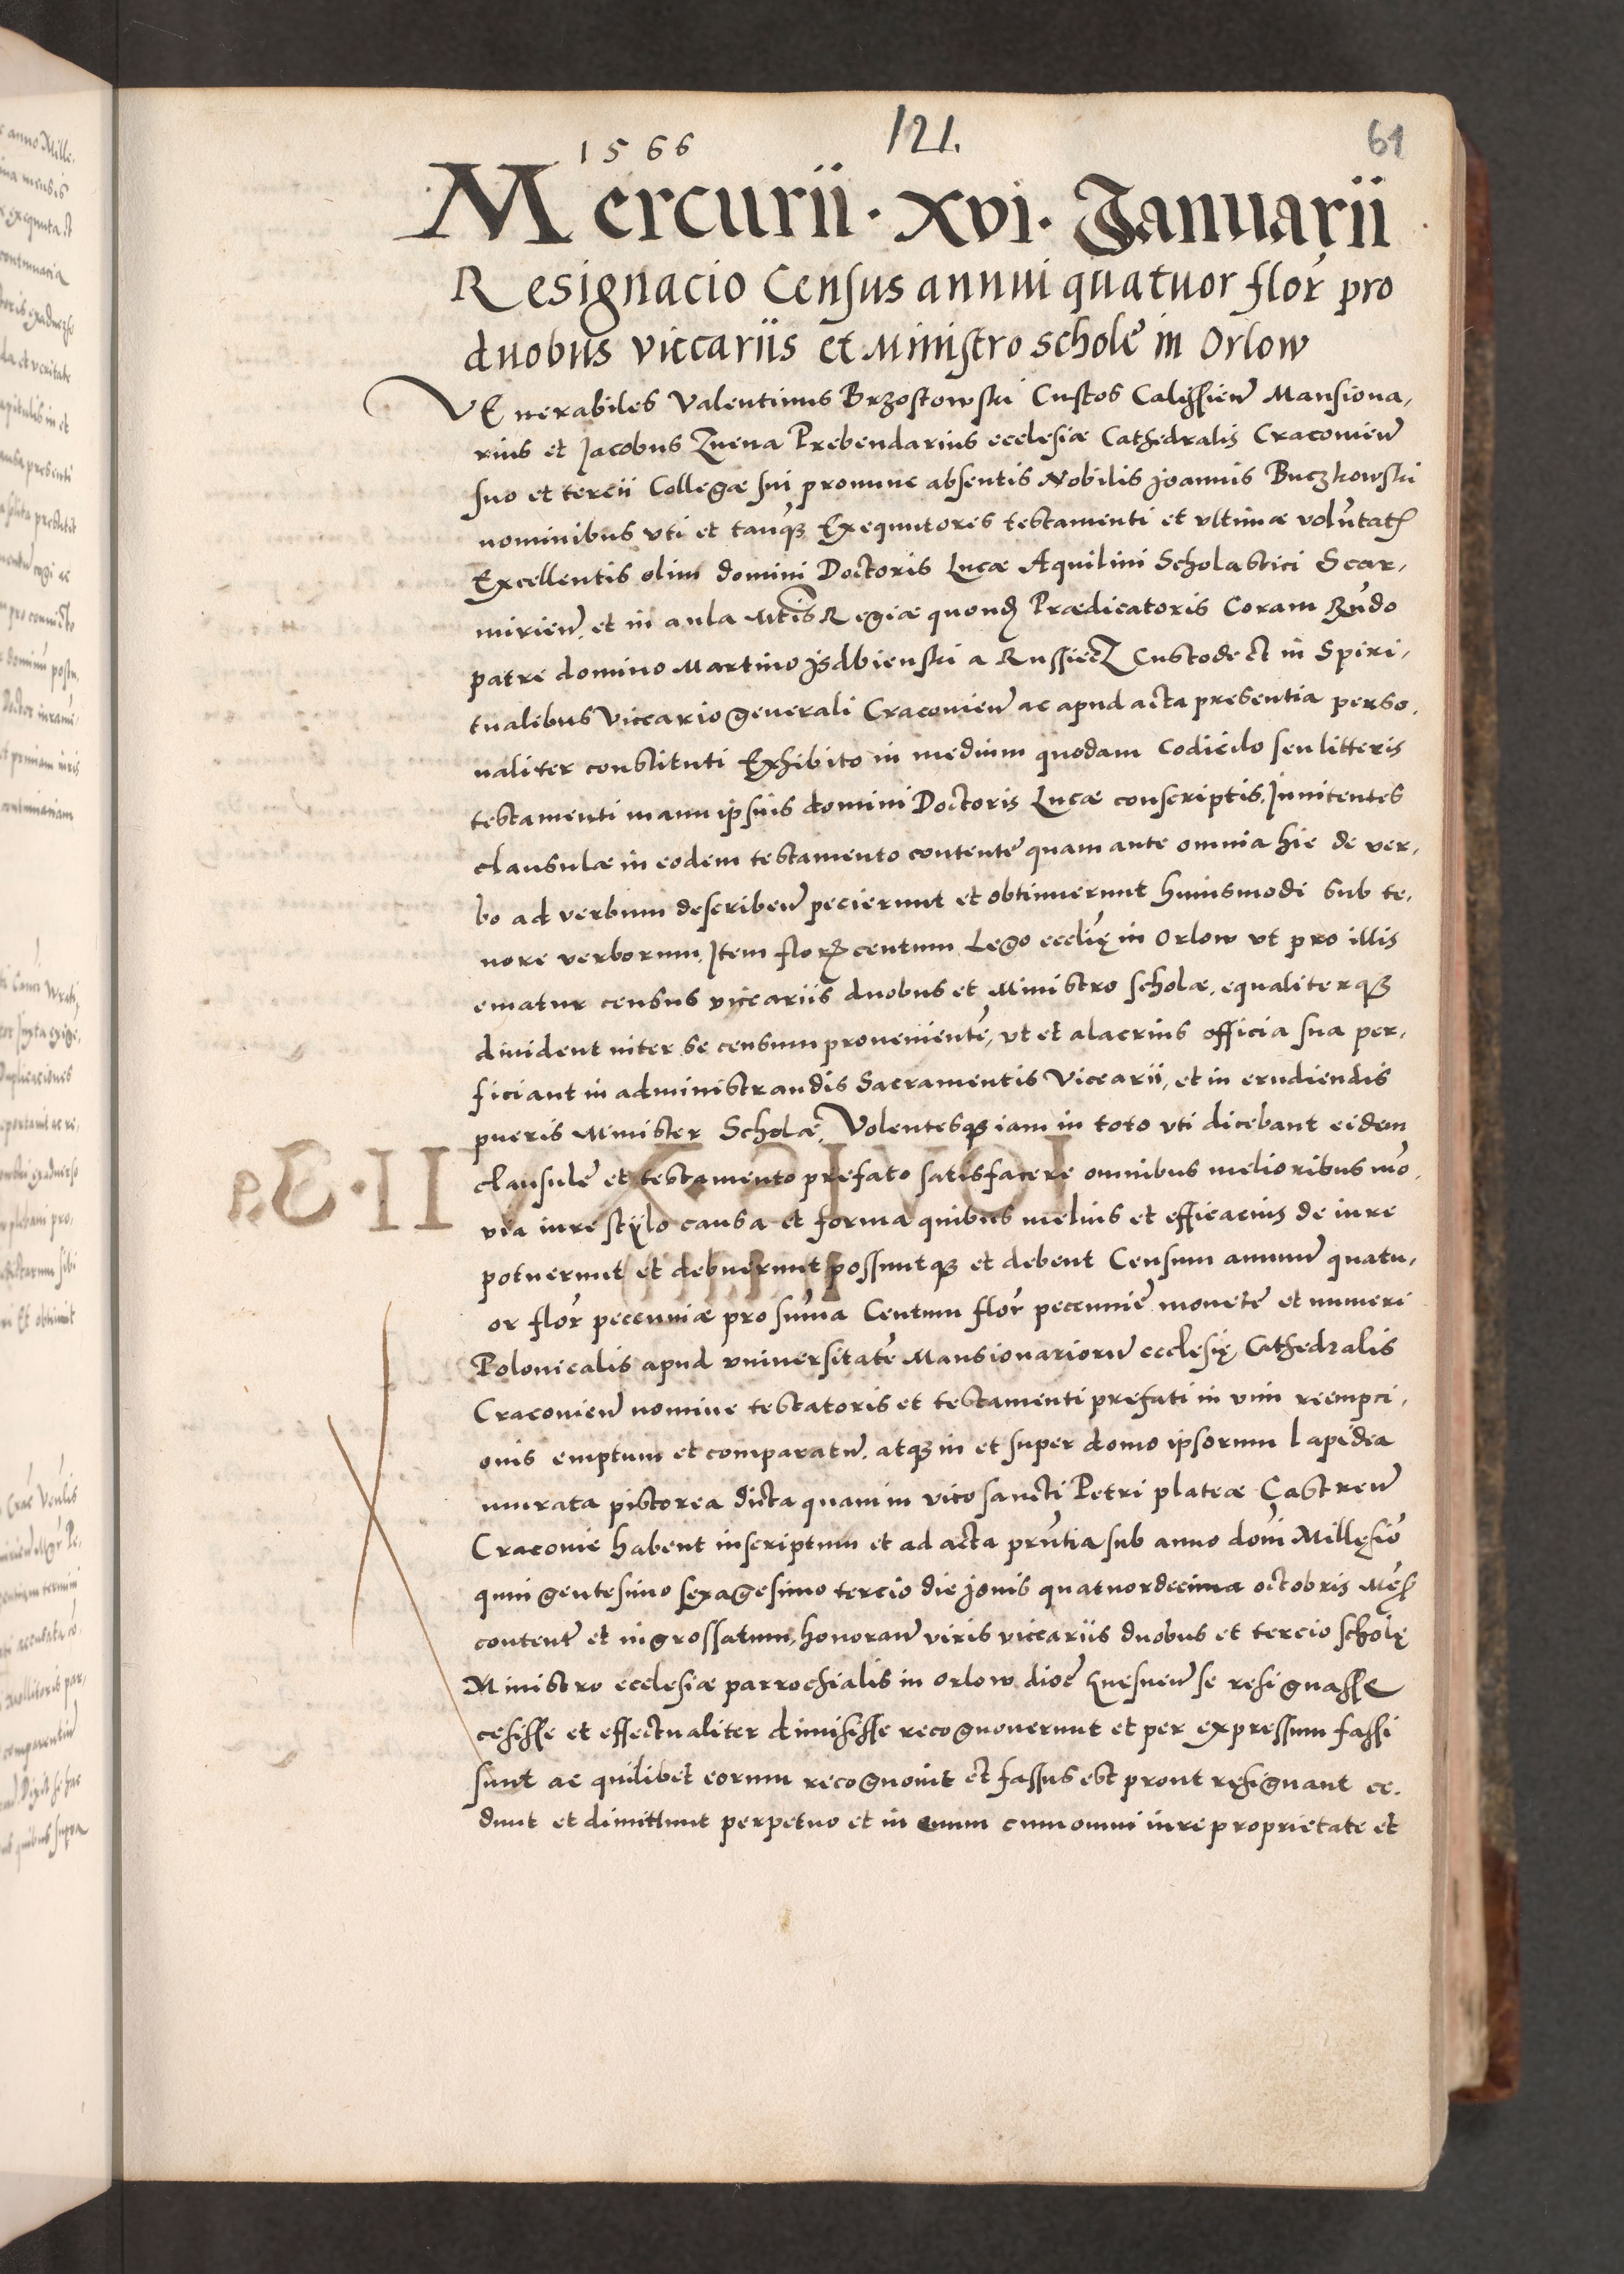 1566
121.
61
Mercurii · xvi · Januarii
Resignacio Census annui quatuor flor̄ pro
duobus viccariis et Ministro scholę in Orlow
VEnerabiles Valentinus Brzostowski Custos Calissien̄ Mansiona,
rius et Jacobus Zuena Prebendarius ecclesiæ Cathedralis Cracovien̄
suo et tercii Collegæ sui pronunc absentis Nobilis Joannis Buczkowski
nominibus vti et tanqȝ Exequutores testamenti et vltimæ volūtatꝭ
Excellentis olim domini Doctoris Lucæ Aquilini Scholastici Scar,
mirien̄. et in aula Mtis Regiæ quondꝫ Prædicatoris Coram Rn̄do
patre domino Martino Jsdbienski a Russiecz Custode et in Spiri,
tualibus Viccario generali Cracovien̄ ac apud acta presentia perso,
naliter constituti Exhibito in medium quodam Codicilo seu litteris
testamenti manu ipsius domini Doctoris Lucæ conscriptis. Innitentes
clausulæ in eodem testamento contentę quam ante omnia hic de ver,
bo ad verbum describen̄ pecierunt et obtinuerunt huiusmodi sub te,
nore verborum. Item florꝭ centum Lego ecclīę in Orlow vt pro illis
ematur census viccariis duobus et Ministro scholæ. equaliterqȝ
diuident inter se censum provenientē, vt et alacrius officia sua per,
ficiant in administrandis Sacramentis Viccarii, et in erudiendis
pueris Minister Scholæ. Volentesqȝ iam in toto vti dicebant eidem
clausulę et testamento prefato satisfacere omnibus melioribus mō
via iure stÿlo causa et forma quibus melius et efficacius de iure
potuerunt et debuerunt possuntqȝ et debent Censum annuū quatu,
or flor̄ peccuniæ pro sum̄a Centum flor̄ peccunię monetę et numeri
Polonicalis apud vniversitatē Mansionariorū ecclesię Cathedralis
Cracovien̄ nomine testatoris et testamenti prefati in vim reempci,
onis emptum et comparatū. atqȝ in et super domo ipsorum lapidea
murata pictorea dicta quam in vico sancti Petri plateæ Castren̄
Cracovie habent inscriptum et ad acta prn̄tia sub anno domī Millēsio
quingentesimo sexagesimo tercio die Jovis quatuordecima octobris
content̄ et ingrossatum, honoran̄ viris viccariis duobus et tercio scholę
Ministro ecclesiæ parrochialis in Orlow dioc̄ Gnesnen̄ se resignasse
cesisse et effectualiter dimisisse recognoverunt et per expressum fassi
sunt ac quilibet eorum recognovit et fassus est prout resignant ce.
dunt et dimittunt perpetuo et in evum cum omni iure proprietate et